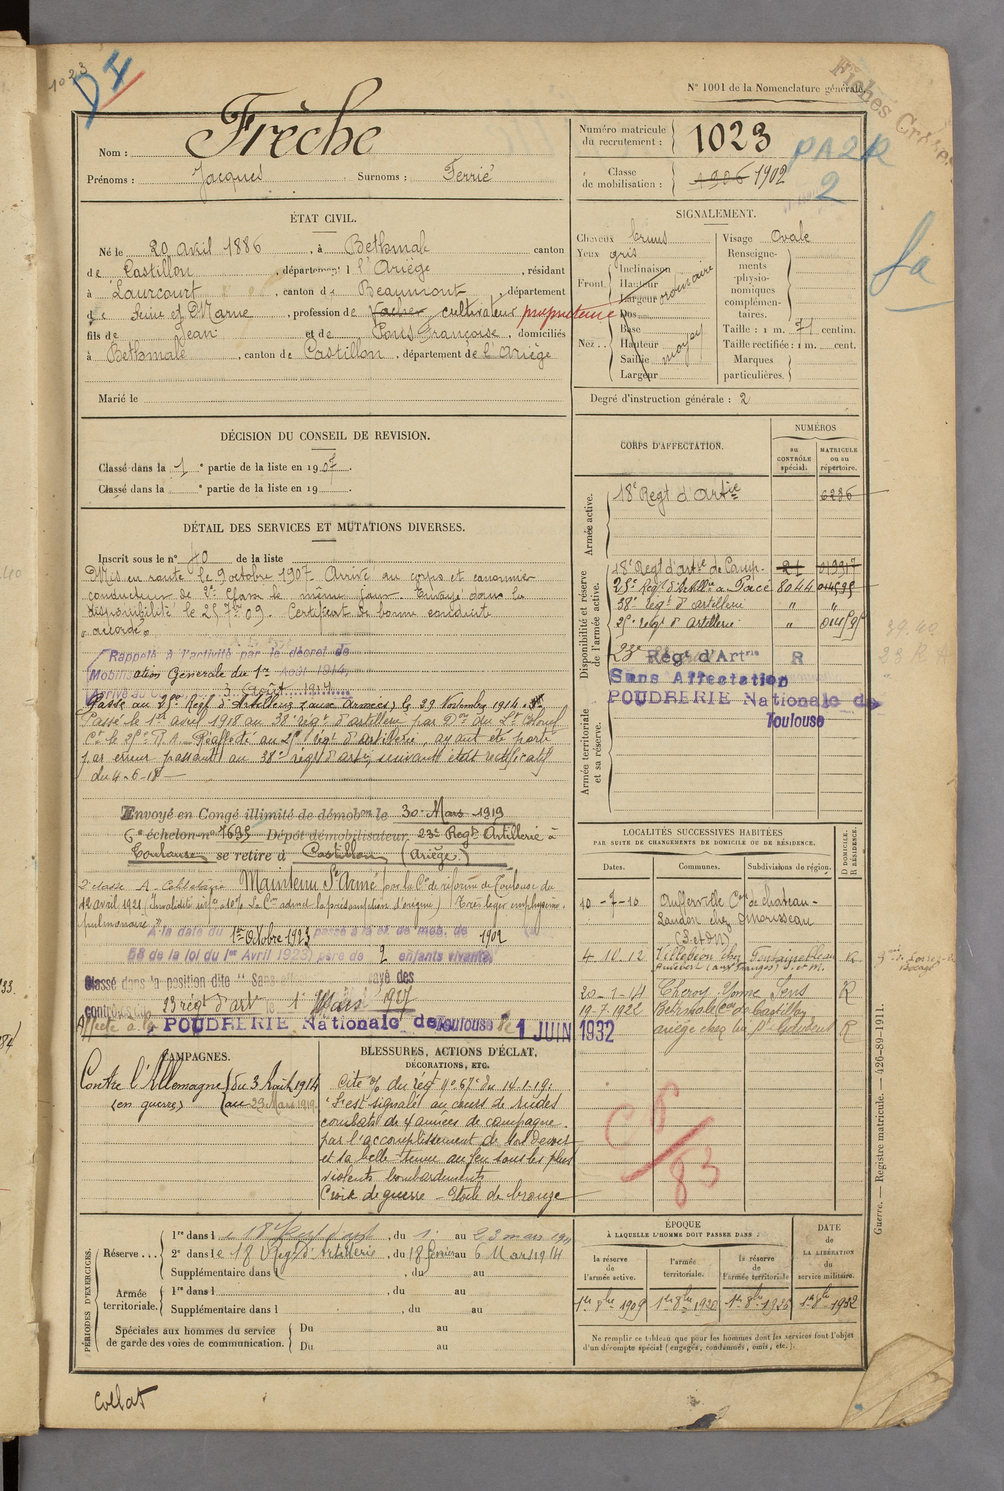 1023
D I
Nº 1001 de la Nomenclature générale.
Fichés
Nom : Frèche
Prénoms : Jacques Surnoms : Ferrié
Numéro matricule du recrutement : 1023
PA2R
2
Classe de mobilisation : 1906 1902
fa
ÉTAT CIVIL.
Né le 20 avril 1886, à Bethmale canton
de Castillon, département d l'Ariège, résidant
à Lourcourt, canton de Beaumont, département
de Seine et Marne, profession de Vacher cultivateur propriétaire
fils de Jean et de Pons Françoise, domiciliés
à Bethmale, canton de Castillon, département de l'Ariège
Marié le
SIGNALEMENT.
Cheveux bruns
Yeux gris
Front. Inclinaison Hauteur Largeur ordinaire
Nez.. Dos Base Hauteur Saillie Largeur moyen
Visage Ovale
Renseignements physionomiques complémentaires.
Taille : 1 m. 71 centim.
Taille rectifiée : 1 m. cent.
Marques particulières.
Degré d'instruction générale : 2
DÉCISION DU CONSEIL DE REVISION.
Classé dans la 1e partie de la liste en 1907.
Classé dans la e partie de la liste en 19
DÉTAIL DES SERVICES ET MUTATIONS DIVERSES.
Inscrit sous le nº 40 de la liste
Mis en route le 9 octobre 1907. Arrivé au corps et canonnier
conducteur de 2e classe le même jour. Envoyé dans la
disponibilité le 25 7bre 09. Certificat de bonne conduite
"accordé"
Rappelé à l'activité par le décret de
Mobilisation Générale du 1er Août 1914,
Arrivé au Corps 3 Août 1914
Passé au 25e Régt d'Artillerie (aux Armées) le 29 Novembre 1914
Passé le 1er avril 1918 au 38e régt d'artillerie par Don du Lt Colonel
Ct le 25e R A. Réaffecté au 25e régt d'artillerie, ayant été porté
par erreur passant au 38e régt d'artie, suivant état rectificatif
du 4-6-18
Envoyé en Congé illimité de démobon le 30 Mars 1919
6e échelon nº 7695 Dépôt démobilisateur 23e Regt Artillerie à
Toulouse se retire à Castillon (Ariège.)
Maintenu St armé par la Con de réforme de Toulouse du
12 avril 1921 (Invalidité infre à 10% La Con admet la présomption d'origine) (Très léger emphysème
pulmonaire
A la date du 1er Octobre 1923 passé à la cl. de mob. de 1902
58 de la loi du 1er Avril 1923) père de 2 enfants vivants
Classé dans la position dite "Sans
23 régt d'artie le 1er Mars 1927
Affecté à la POUDRERIE Nationale de Toulouse le 1 JUIN 1932
CORPS D'AFFECTATION.
NUMÉROS
au CONTRÔLE spécial.
MATRICULE ou au répertoire.
Armée active.
18e Regt d'Artie 6286
Disponibilité et réserve de l'armée active.
18e Regt d'artie de Camp. 21 019317
25e Régt d'Artillie à Pacé 8044 04595
38e régt d'artillerie " "
25e régt d'artillerie "
23e Régt d'Artrie R
Sans Affectation
POUDRERIE Nationale de Toulouse
Armée territoriale et sa réserve.
LOCALITÉS SUCCESSIVES HABITÉES
PAR SUITE DE CHANGEMENTS DE DOMICILE OU DE RÉSIDENCE.
Dates. Communes. Subdivisions de région. D DOMICILE. R RÉSIDENCE.
10-7-10 Aufferville Con de Chateau-
Landon chez Morisseau
(S et M)
4 10.12 Villebéon chez Fontainebleau R
20-1-14 Cheroy Yonne Sens R
19-7-1922 Bethmale Con de Castillon
ariège R
CAMPAGNES.
Contre l'Allemagne du 3 Août 1914
(en guerre) au 29 Mars 1919.
BLESSURES, ACTIONS D'ÉCLAT,
DÉCORATIONS, ETC.
Cité o/ du régt nº 67 du 14.1.19:
"S'est signalé au cours de rudes
combats de 4 années de campagne
par l'accomplissement de son devoir
et sa belle tenue au feu sous les plus
violents bombardements
Croix de guerre - Etoile de bronze
83
PÉRIODES D'EXERCICES.
Réserve... 1re dans le 18e Regt d'art, du 1 au 23 mars 1911
2e dans le 18e Régt d'Artillerie, du 18 février au 6 Mars 1914
Supplémentaire dans l , du au
Armée territoriale. 1re dans l , du au
Supplémentaire dans l , du au
Spéciales aux hommes du service de garde des voies de communication. Du au
Du au
ÉPOQUE
À LAQUELLE L'HOMME DOIT PASSER DANS
la réserve de l'armée active. l'armée territoriale. la réserve de l'armée territoriale
DATE DE LA LIBÉRATION du service militaire.
1er 8bre 1909 1er 8bre 1920 1er 8bre 1926 1er 8bre 1932
Ne remplir ce tableau que pour les hommes dont les services font l'objet
d'un décompte spécial (engagés, condamnés, omis, etc.).
Guerre. — Registre matricule. — 426-89-1911.
Collat